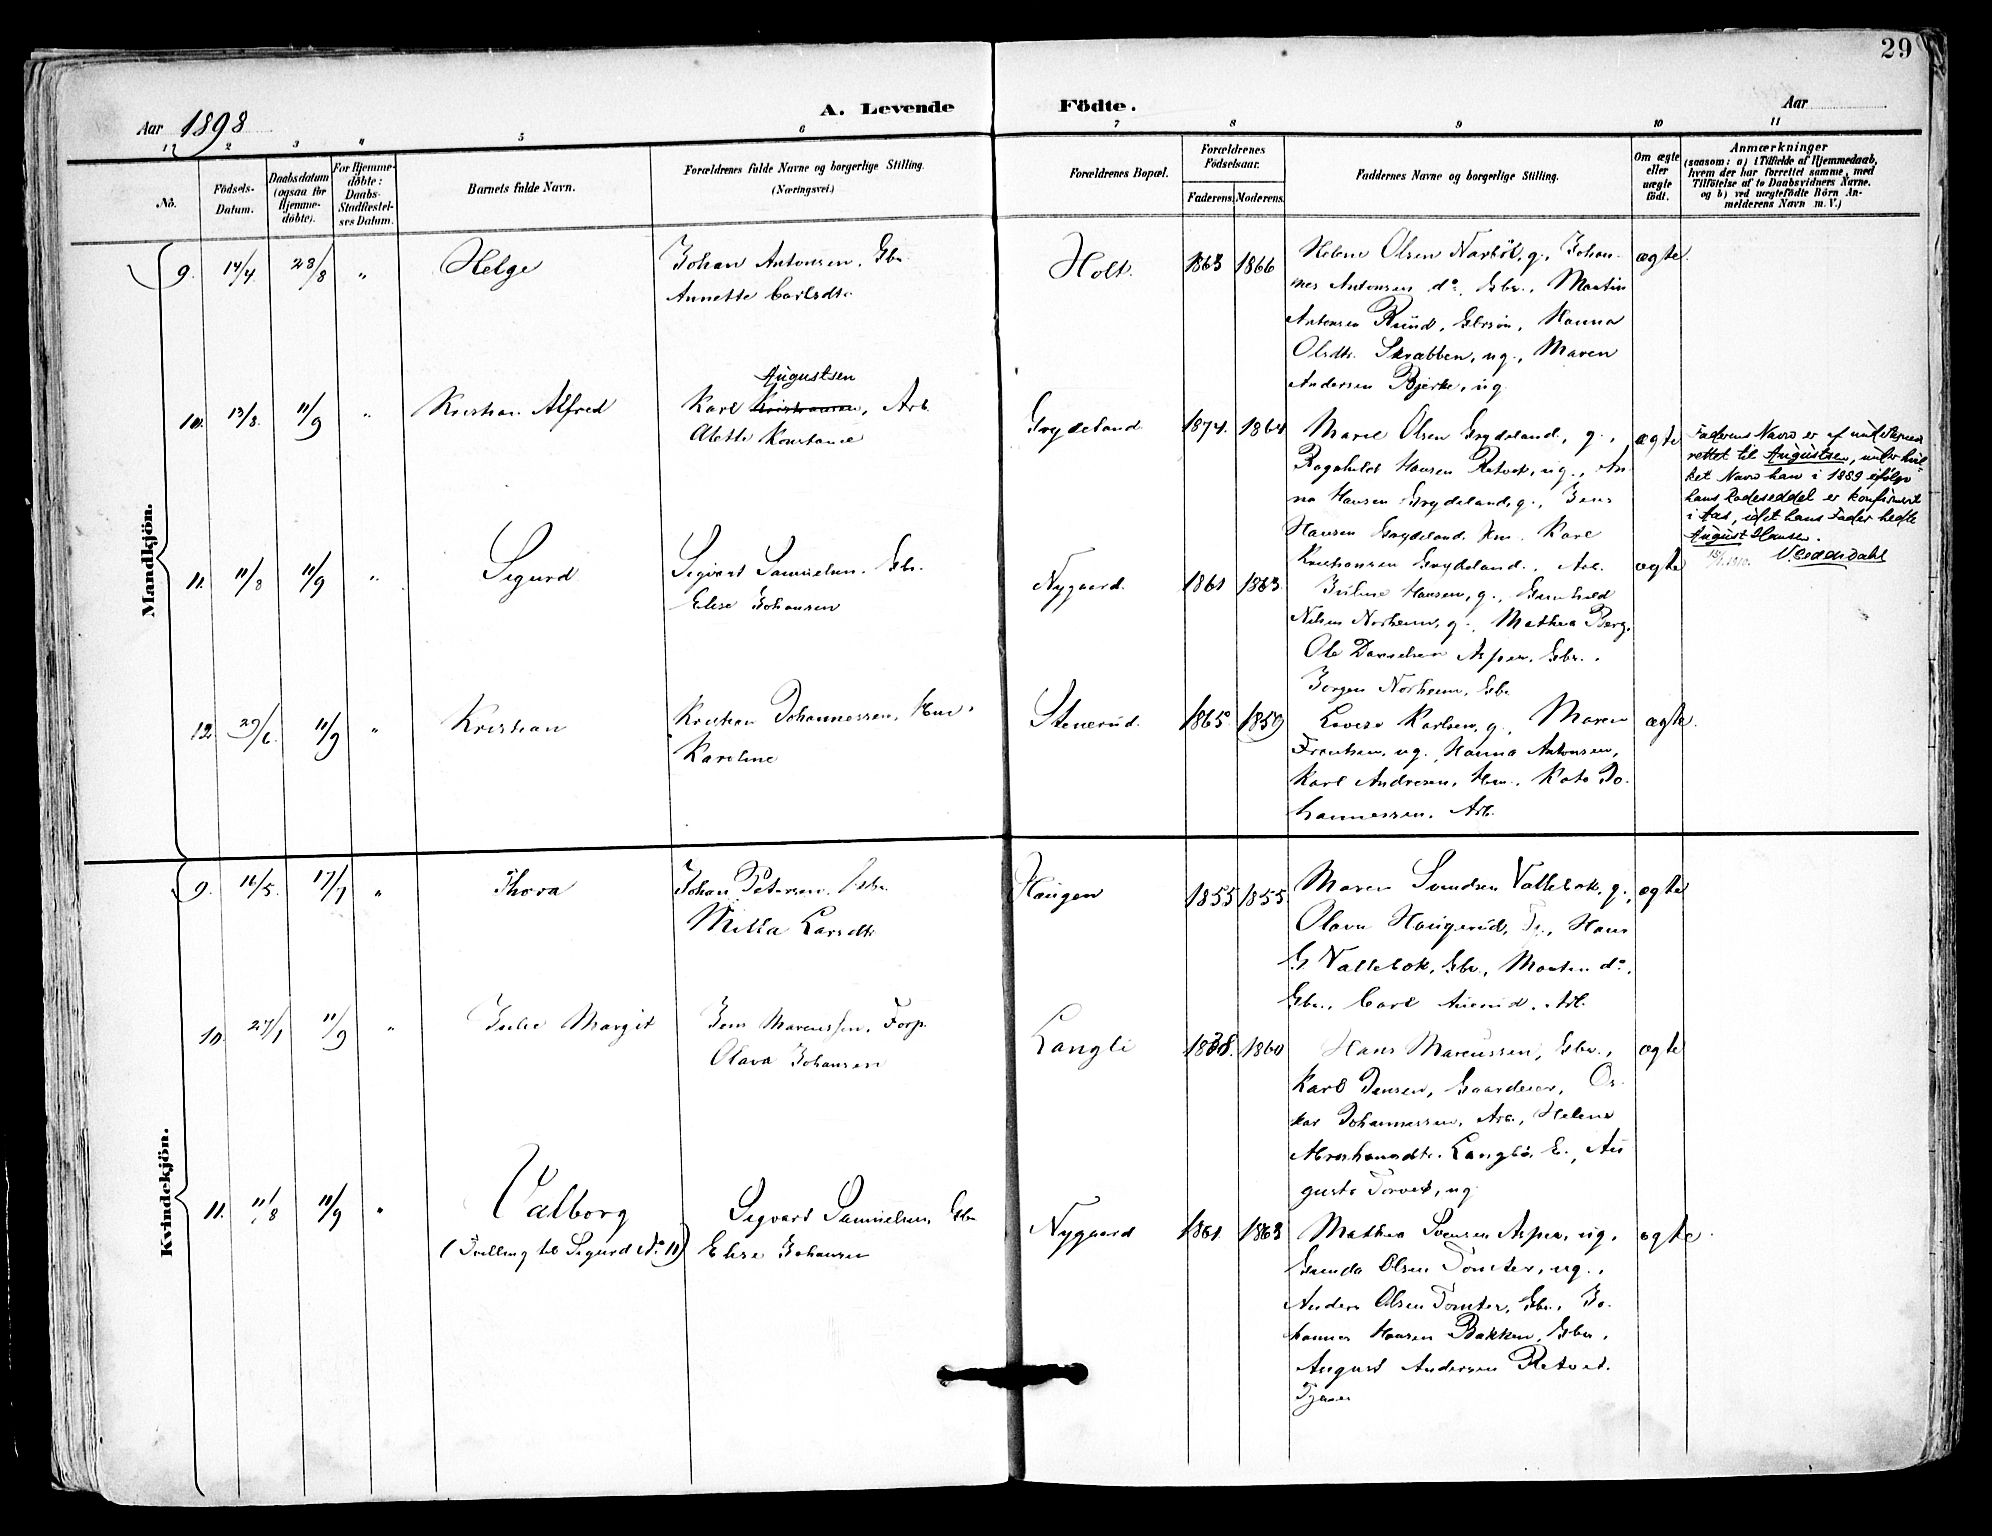 29
Aar 1898
A. Levende Födte.
Aar
1 2 3 " 5 6 7 8 9 10 11
No.
Födsels-
Datum.
Daabsdatum
(ogsaa for
Hjemme-
döbte).
For Hjemme-
döbte:
Daabs-
Stadfæstel-
ses Datum.
Barnets fulde Navn.
Forældrenes fulde Navne og borgerlige Stilling.
(Næringsvei.)
Forældrenes Bopæl.
Forældrenes
Födselsaar.
Faderens. Moderens.
Faddernes Navne og borgerlige Stilling.
Om ægte
eller
uægte
födt.
Anmærkninger
(saasom: a) i Tilfælde af Hjemmedaab,
hvem der har forrettet samme, med
Tilföielse af to Daabsvidners Navne.
og b) ved uægtefödte Börn An-
melderens Navn m. V.)
Mandkjön.
9. 14/4 28/8 " Helge
Johan Antonsen, Gbr.
Annette Carlsdtr.
Holt. 1863 1866
Helene Olsen Narböl, g., Johan-
nes Antonsen do, Gbr., Martin
Antonsen Rund, Gbrsön, Hanna
Olsdtr. Skrabben, ug., Maren
Andersen Bjerke, ug.
ægte
10. 13/8. 11/9 " Kristian Alfred
Augustsen
Karl Kristiansen, Arb.
Alette Konstance
Grydeland 1874. 1864
Marie Olsen Grydeland, g.,
Ragnhild Hansen Retvet, ug., An-
na Hansen Grydeland, g., Jens
Hansen Grydeland, Hm. Karl
Kristiansen Grydeland, Arb.
ægte
Faderens Navn er af undertegnede
rettet til Augustsen, under hvil-
ket Navn han i 1889 ifölge
hans Daabseddel er konfirmeret
i Aas, idet hans Fader hedte
August Hansen.
11. 11/8 11/9 " Sigurd
Sigvart Samuelsen, Gbr.
Elise Johansen
Nygaard. 1861 1863.
Juline Hansen, g., Gunhild
Nilsen Norheim, g., Mathea Berg,
Ole Danielsen Asper, Gbr.,
Jörgen Norheim, Gbr.
ægte
12. 29/6. 11/9 " Kristian
Kristian Johannessen, Hm.
Karoline
Stenerud. 1865 1859
Lovise Karlsen, g., Maren
Frantsen, ug., Hanna Antonsen,
Karl Andresen, Hm., Kato Jo-
hannessen, Arb.
ægte.
Kvindekjön.
9. 16/5. 17/7 " Thora
Johan Petersen, Gbr.
Milla Larsdtr.
Haugen 1855 1855
Maren Svendsen Vallebok, g.,
Olava Haugerud, Tj., Hans
G. Vallebok, Gbr., Morten do,
Gbr., Carl Auerud, Arb.
ægte
10. 27/1 11/9 " Julie Margit
Jens Marcussen, Forp.
Olava Johansen
Langli 1838. 1860
Hans Marcussen, Gbr.,
Karl Jensen, Gaardeier, Os-
kar Johannessen, Arb., Helene
Langbö, E., Au-
gusta Torvet, ug.
ægte
11. 11/8 11/9 " Valborg
(Tvilling til Sigurd No 11)
Sigvart Samuelsen, Gbr.
Elise Johansen
Nygaard 1861. 1863
Mathea Svensen Asper, ug.,
Gunda Olsen Tomter, ug.,
Anders Olsen Tomter, Gbr., Jo-
hannes Hansen Bakken, Gbr.,
August Andersen Retvet.
Tjener
ægte.